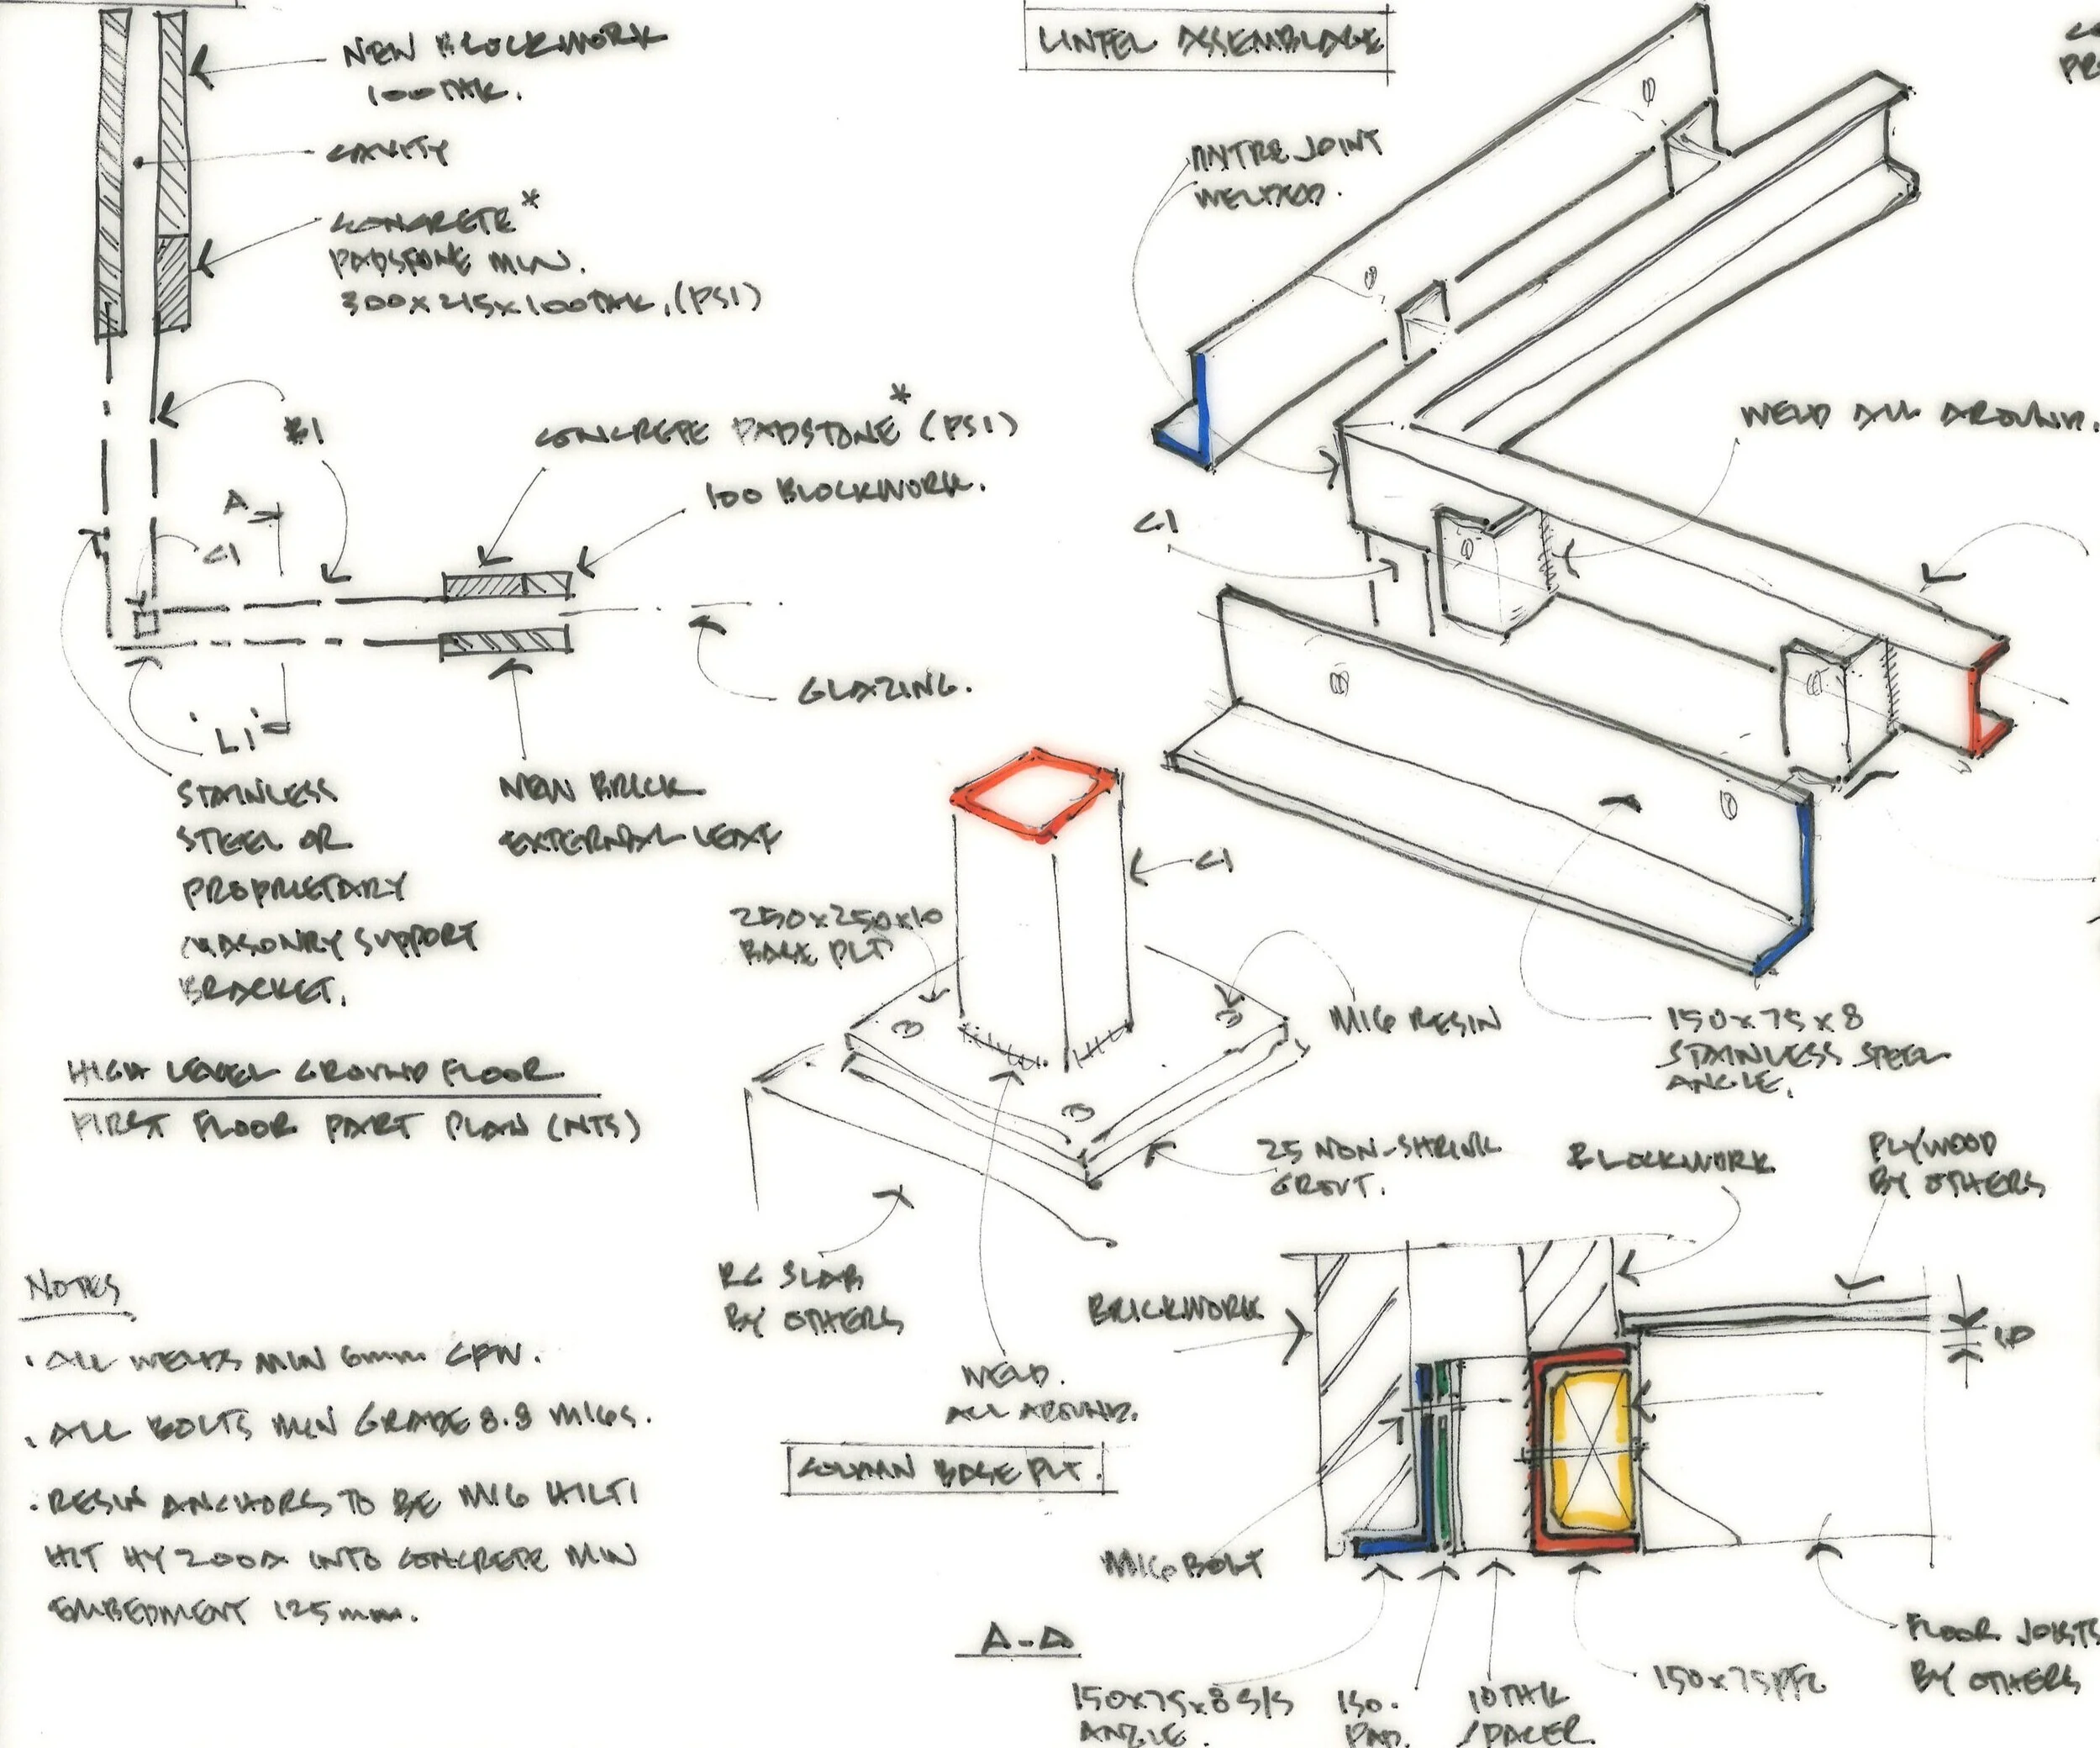 NEW BLOCKWORK
100THK.
CAVITY
CONCRETE*
PADSTONE MIN.
300x215x100THK. (PS1)
B1
CONCRETE PADSTONE* (PS1)
100 BLOCKWORK.
A
C1
GLAZING.
'L1'
STAINLESS
STEEL OR
PROPRIETARY
MASONRY SUPPORT
BRACKET.
NEW BRICK
EXTERNAL LEAF
HIGH LEVEL GROUND FLOOR
FIRST FLOOR PART PLAN (NTS)
NOTES
. ALL WELDS MIN 6mm CFW.
. ALL BOLTS MIN GRADE 8.8 M16s.
. RESIN ANCHORS TO BE M16 HILTI
HIT HY200A INTO CONCRETE MIN
EMBEDMENT 125mm.
LINTEL ASSEMBLAGE
MITRE JOINT
WELDED.
WELD ALL AROUND.
C1
150x75x8
STAINLESS STEEL
ANGLE.
C1
250x250x10
BASE PLT
M16 RESIN
25 NON-SHRINK
GROUT.
RC SLAB
BY OTHERS
WELD.
ALL AROUND.
COLUMN BASE PLT.
BLOCKWORK
PLYWOOD
BY OTHERS
BRICKWORK
10
M16 BOLT
A-A
150x75x8 S/S
ANGLE.
ISO.
PAD.
10THK
SPACER.
150x75PFC
FLOOR JOISTS
BY OTHERS